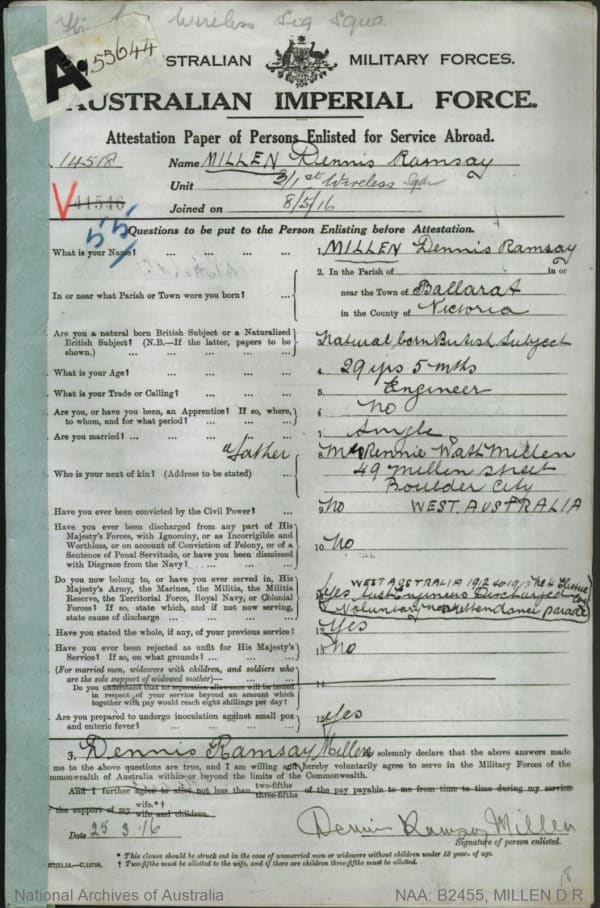 Wireless Sig Squa
A. 55644
AUSTRALIAN MILITARY FORCES.
AUSTRALIAN IMPERIAL FORCE.
Attestation Paper of Persons Enlisted for Service Abroad.
14518 Name MILLEN Dennis Ramsay
Unit 2/1st Wireless Sqdn
41546 Joined on 8/5/16
55
Questions to be put to the Person Enlisting before Attestation.
What is your Name? ... ... ... ... 1. MILLEN Dennis Ramsay
2. In the Parish of in or
In or near what Parish or Town were you born? ... near the Town of Ballarat
in the County of Victoria
Are you a natural born British Subject or a Naturalized
British Subject? (N.B.—If the latter, papers to be
shown.) ... ... ... ... ... Natural born British Subject
What is your Age? ... ... ... ... 4. 29 yrs 5 mths
What is your Trade or Calling? ... ... ... ... 5. Engineer
Are you, or have you been, an Apprentice? If so, where,
to whom, and for what period? ... ... ... 6. No
Are you married? ... ... ... ... ... 7. Single
father 8. Rennie Watt Millen
Who is your next of kin? (Address to be stated) ... 49 Millen Street
Boulder City
WEST. AUSTRALIA
Have you ever been convicted by the Civil Power? ... 9. No
Have you ever been discharged from any part of His
Majesty's Forces, with Ignominy, or as Incorrigible and
Worthless, or on account of Conviction of Felony, or of a
Sentence of Penal Servitude, or have you been dismissed
with Disgrace from the Navy? ... ... ... 10. No
Do you now belong to, or have you ever served in, His
Majesty's Army, the Marines, the Militia, the Militia
Reserve, the Territorial Force, Royal Navy, or Colonial
Forces? If so, state which, and if not now serving,
state cause of discharge ... ... ...
WEST AUSTRALIA 1912 to 1913
Yes Engineers Discharged
Voluntary attendance parade
Have you stated the whole, if any, of your previous service? 12. Yes
Have you ever been rejected as unfit for His Majesty's
Service? If so, on what grounds? ... ... ... 13. No
(For married men, widowers with children, and soldiers who
are the sole support of widowed mother)—
Do you understand that no separation allowance will be issued
in respect of your service beyond an amount which
together with pay would reach eight shillings per day? 14.
Are you prepared to undergo inoculation against small pox
and enteric fever? ... ... ... ... 15. Yes
3. Dennis Ramsay Millen solemnly declare that the above answers made
me to the above questions are true, and I am willing and hereby voluntarily agree to serve in the Military Forces of the
mmonwealth of Australia within or beyond the limits of the Commonwealth.
And I further agree to allot not less than two-fifths three-fifths of the pay payable to me from time to time during my service
the support of my wife.*† wife and children.
Date 25 3 16 Dennis Ramsay Millen
Signature of person enlisted.
* This clause should be struck out in the case of unmarried men or widowers without children under 18 years of age.
† Two-fifths must be allotted to the wife, and if there are children three-fifths must be allotted.
National Archives of Australia NAA: B2455, MILLEN D R